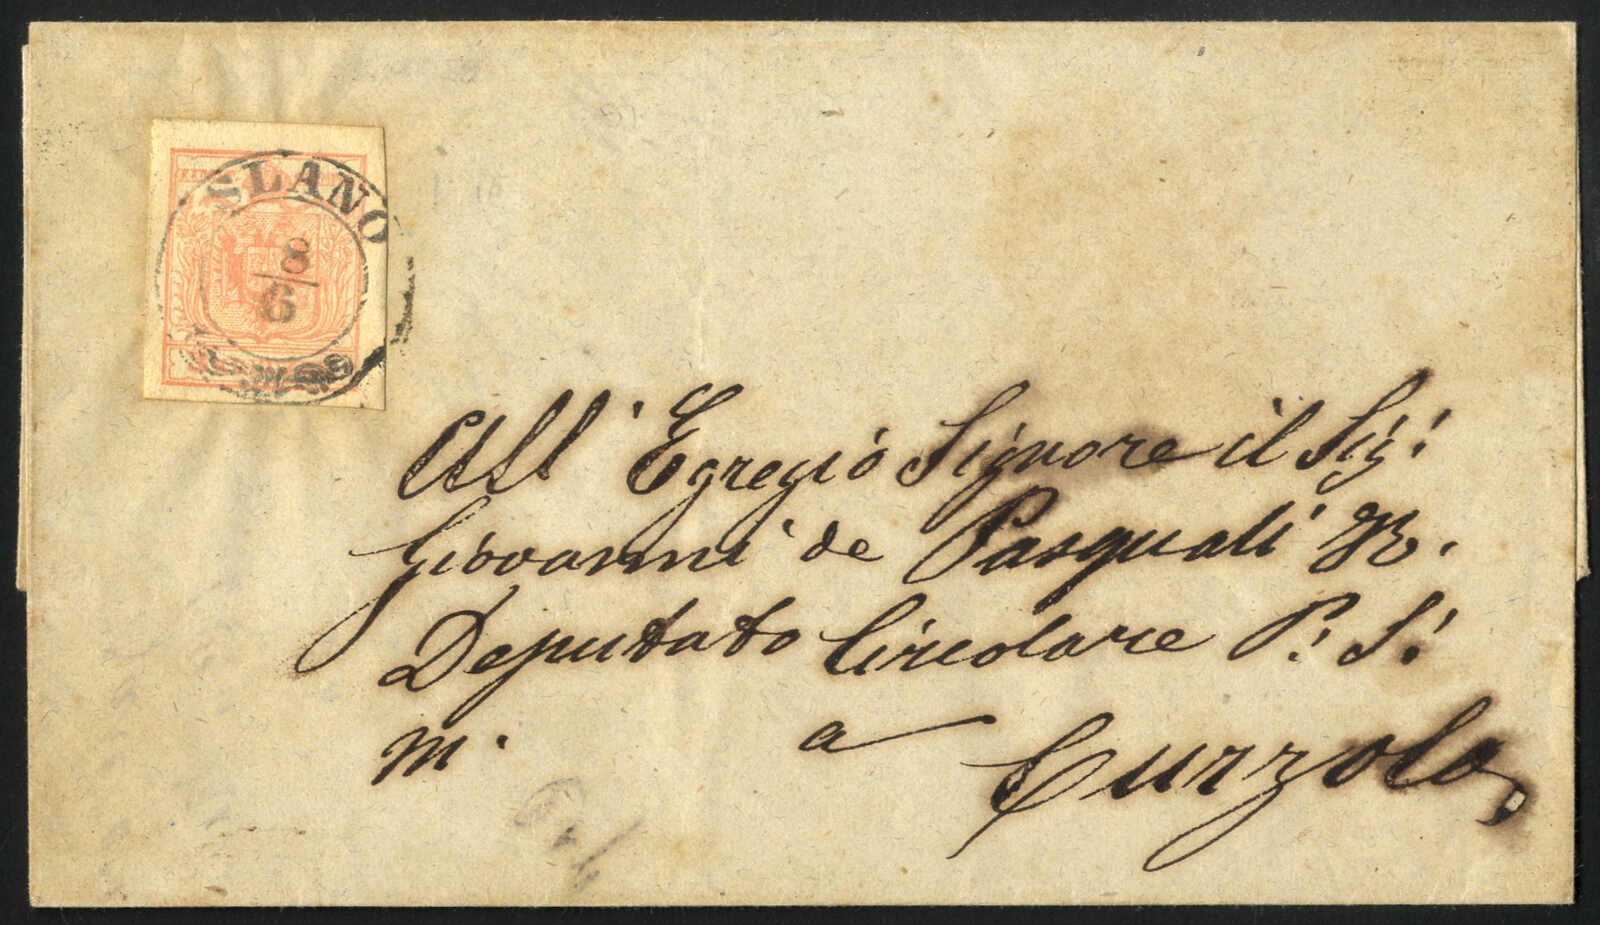 SLANO
8
6
All' Egregio Signore il Sig:
Giovanni de Pasquali
Deputato Circolare P: S:
m. a Curzola